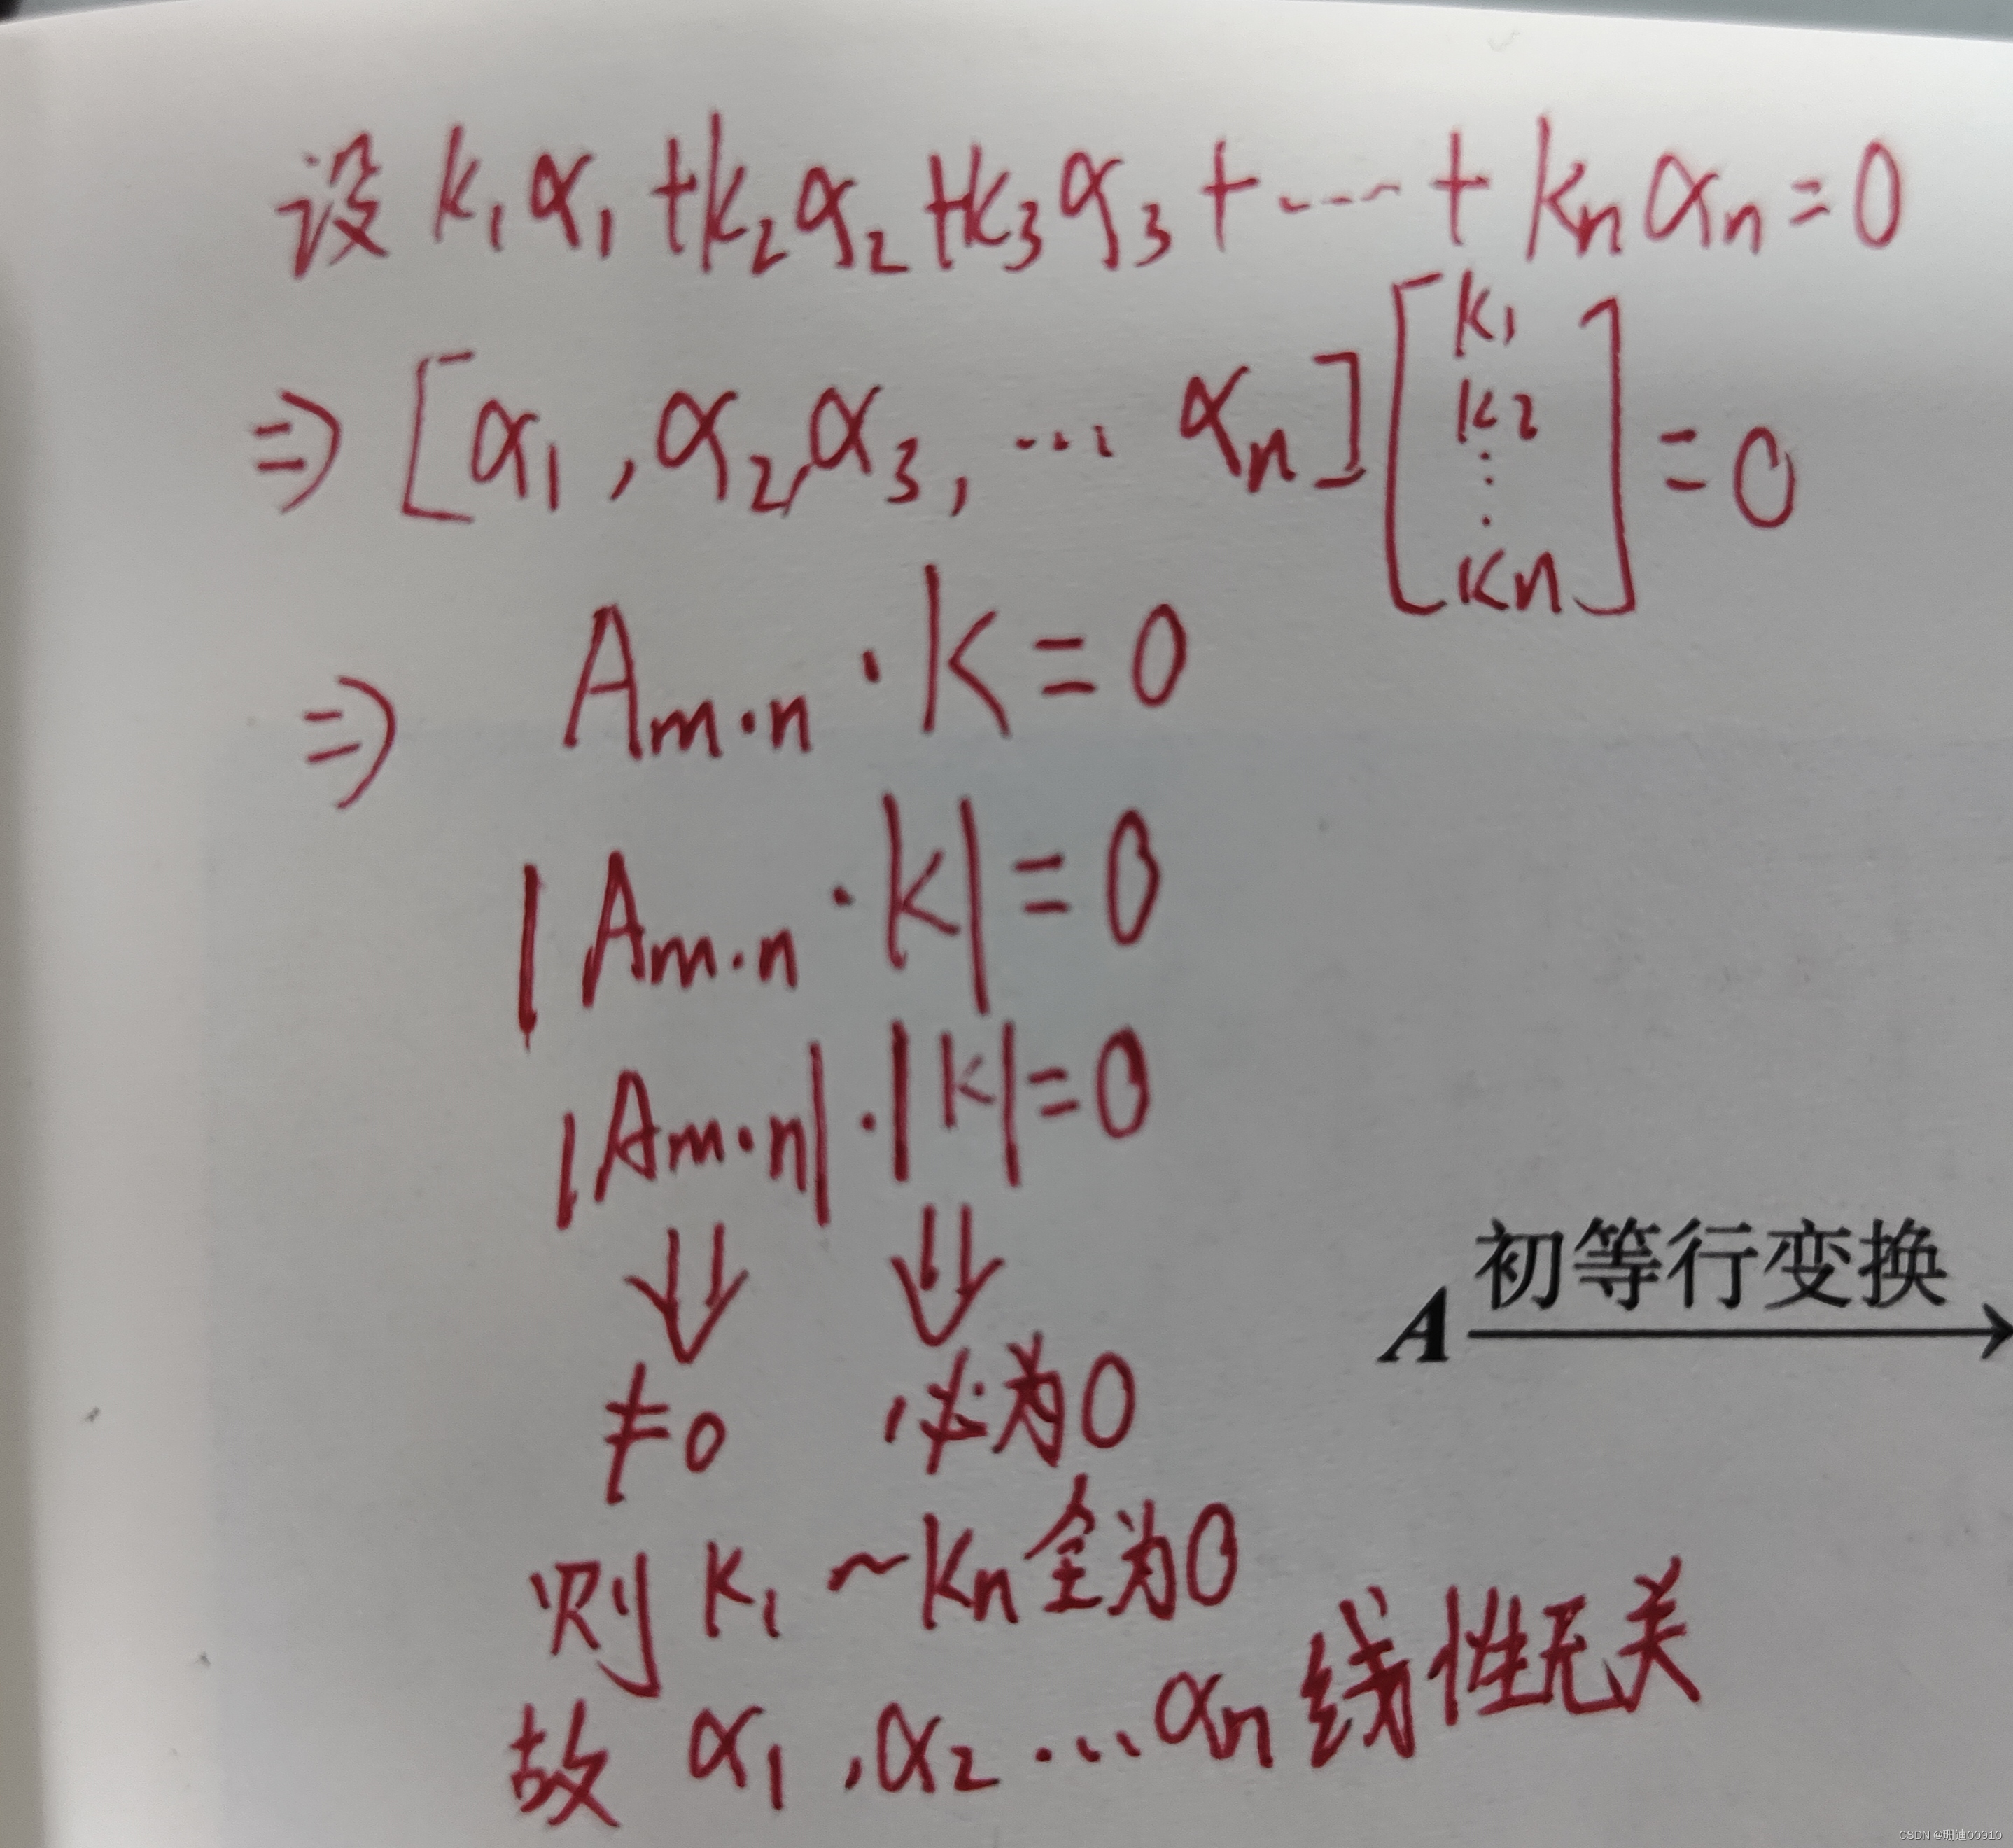 设 k₁α₁+k₂α₂+k₃α₃+⋯+knαn=0
⇒ [α₁,α₂,α₃,…αn][k₁ k₂ ⋮ kn]=0
⇒ Am·n·k=0
|Am·n·k|=0
|Am·n|·|k|=0
⇓ ⇓
≠0 必为0
则 k₁~kn全为0
故 α₁,α₂…αn线性无关
A 初等行变换 →
CSDN @珊迪00910